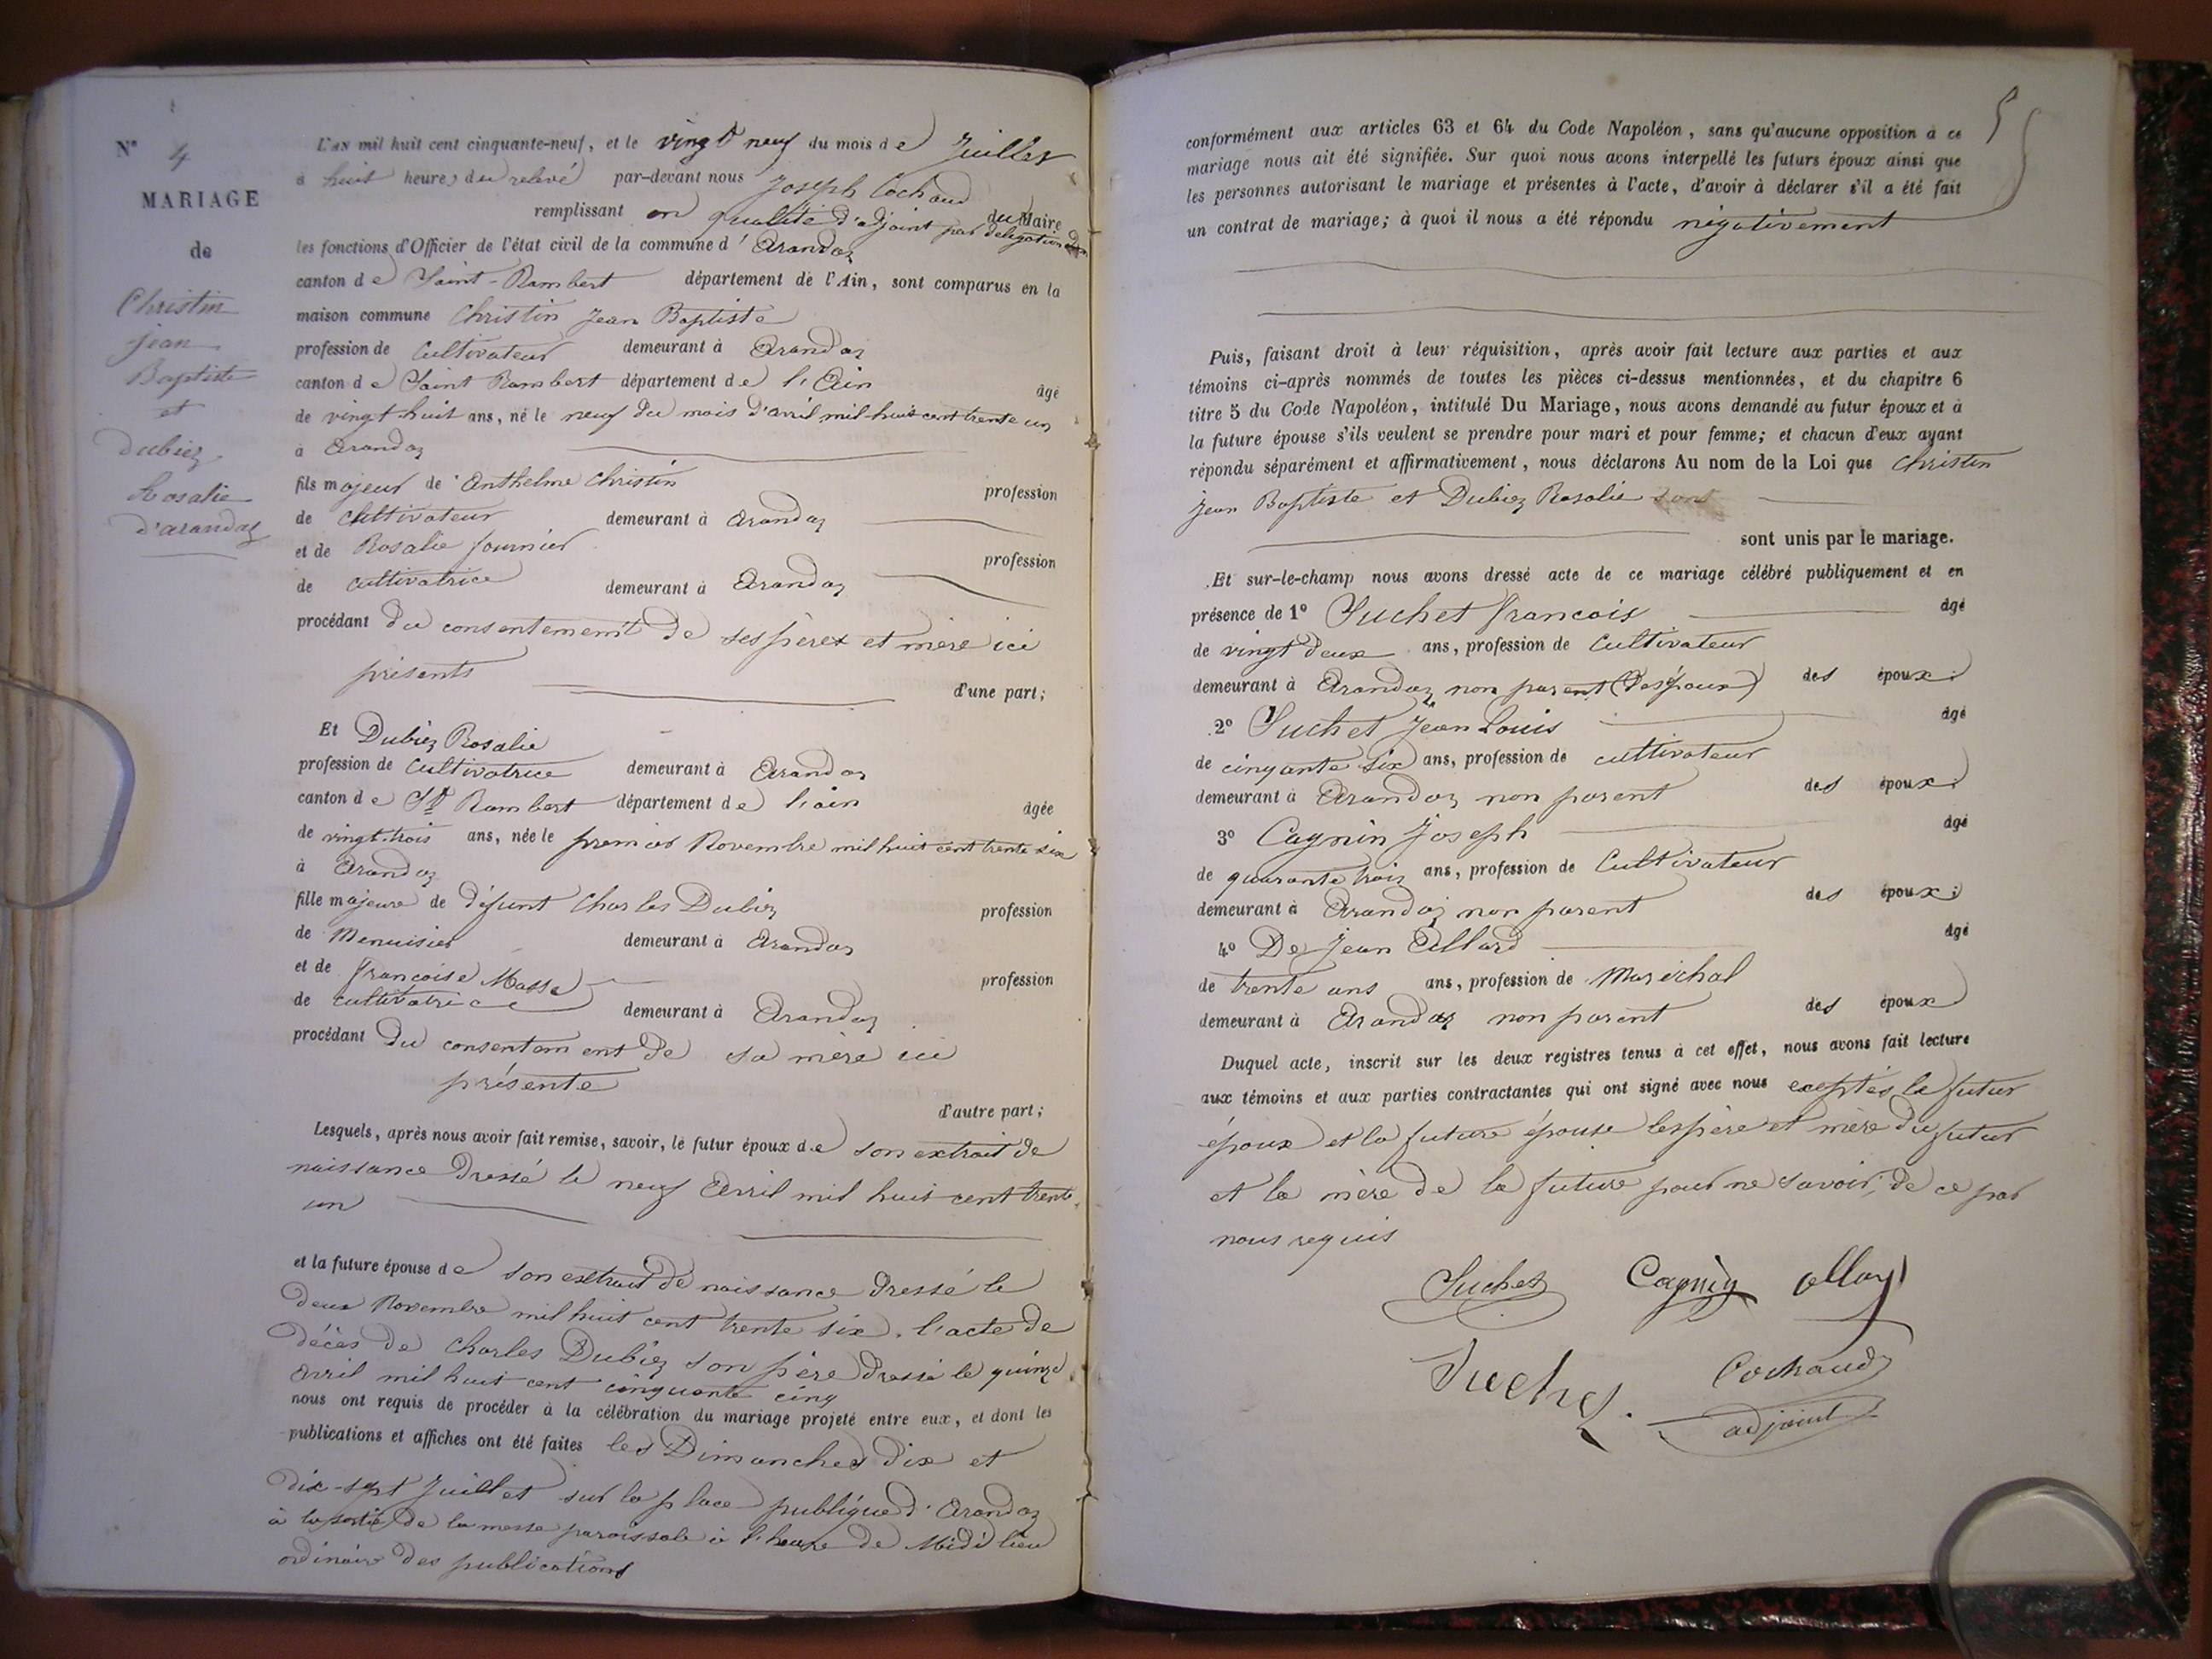 N° 4
MARIAGE
de
Christin
jean
Baptiste
et
Dubiez
Rosalie
d'arandaz
L'AN mil huit cent cinquante-neuf, et le vingt neuf du mois de Juillet
à huit heures du relevé par-devant nous Joseph Cochaud
remplissant en qualité d'adjoint par délégation du Maire
les fonctions d'Officier de l'état civil de la commune d'Arandaz
canton de Saint-Rambert département de l'Ain, sont comparus en la
maison commune Christin Jean Baptiste
profession de Cultivateur demeurant à Arandaz
canton de Saint Rambert département de l'Ain âgé
de vingt huit ans, né le neuf du mois d'avril mil huit cent trente un
à Arandaz
fils majeur de Anthelme Christin profession
de cultivateur demeurant à Arandaz
et de Rosalie fournier profession
de cultivatrice demeurant à Arandaz
procédant du consentement de ses pères et mère ici
présents d'une part;
Et Dubiez Rosalie
profession de Cultivatrice demeurant à Arandaz
canton de St Rambert département de l'ain âgée
de vingt trois ans, née le premier Novembre mil huit cent trente six
à Arandaz
fille majeure de défunt Charles Dubiez profession
de Menuisier demeurant à Arandaz
et de françoise Masse profession
de cultivatrice demeurant à Arandaz
procédant du consentement de sa mère ici
présente
d'autre part;
Lesquels, après nous avoir fait remise, savoir, le futur époux de son extrait de
naissance dressé le neuf Avril mil huit cent trente
un
et la future épouse de son extrait de naissance dressé le
deux Novembre mil huit cent trente six, l'acte de
décès de Charles Dubiez son père dressé le quinze
avril mil huit cent cinquante cinq
nous ont requis de procéder à la célébration du mariage projeté entre eux, et dont les
publications et affiches ont été faites les Dimanches dix et
dix-sept Juillet sur la place publique d'Arandaz
à la sortie de la messe paroissale à l'heure de Midi lieu
ordinaire des publications
conformément aux articles 63 et 64 du Code Napoléon, sans qu'aucune opposition à ce
mariage nous ait été signifiée. Sur quoi nous avons interpellé les futurs époux ainsi que
les personnes autorisant le mariage et présentes à l'acte, d'avoir à déclarer s'il a été fait
un contrat de mariage; à quoi il nous a été répondu négativement
Puis, faisant droit à leur réquisition, après avoir fait lecture aux parties et aux
témoins ci-après nommés de toutes les pièces ci-dessus mentionnées, et du chapitre 6
titre 5 du Code Napoléon, intitulé Du Mariage, nous avons demandé au futur époux et à
la future épouse s'ils veulent se prendre pour mari et pour femme; et chacun d'eux ayant
répondu séparément et affirmativement, nous déclarons Au nom de la Loi que Christin
jean Baptiste et Dubiez Rosalie sont
sont unis par le mariage.
Et sur-le-champ nous avons dressé acte de ce mariage célébré publiquement et en
présence de 1° Suchet françois âgé
de vingt deux ans, profession de Cultivateur
demeurant à Arandaz non parent (des époux) des époux;
2° Suchet Jean Louis âgé
de cinqante six ans, profession de cultivateur
demeurant à Arandaz non parent des époux;
3° Cagnin Joseph âgé
de quarante trois ans, profession de Cultivateur
demeurant à Arandaz non parent des époux;
4° De Jean Allard âgé
de trente ans ans, profession de Maréchal
demeurant à Arandaz non parent des époux
Duquel acte, inscrit sur les deux registres tenus à cet effet, nous avons fait lecture
aux témoins et aux parties contractantes qui ont signé avec nous exceptés le futur
époux et la future épouse les père et mère du futur
et la mère de la future pour ne savoir, de ce par
nous requis
Suchet Cagnin
Suchet Cochaud
adjoint